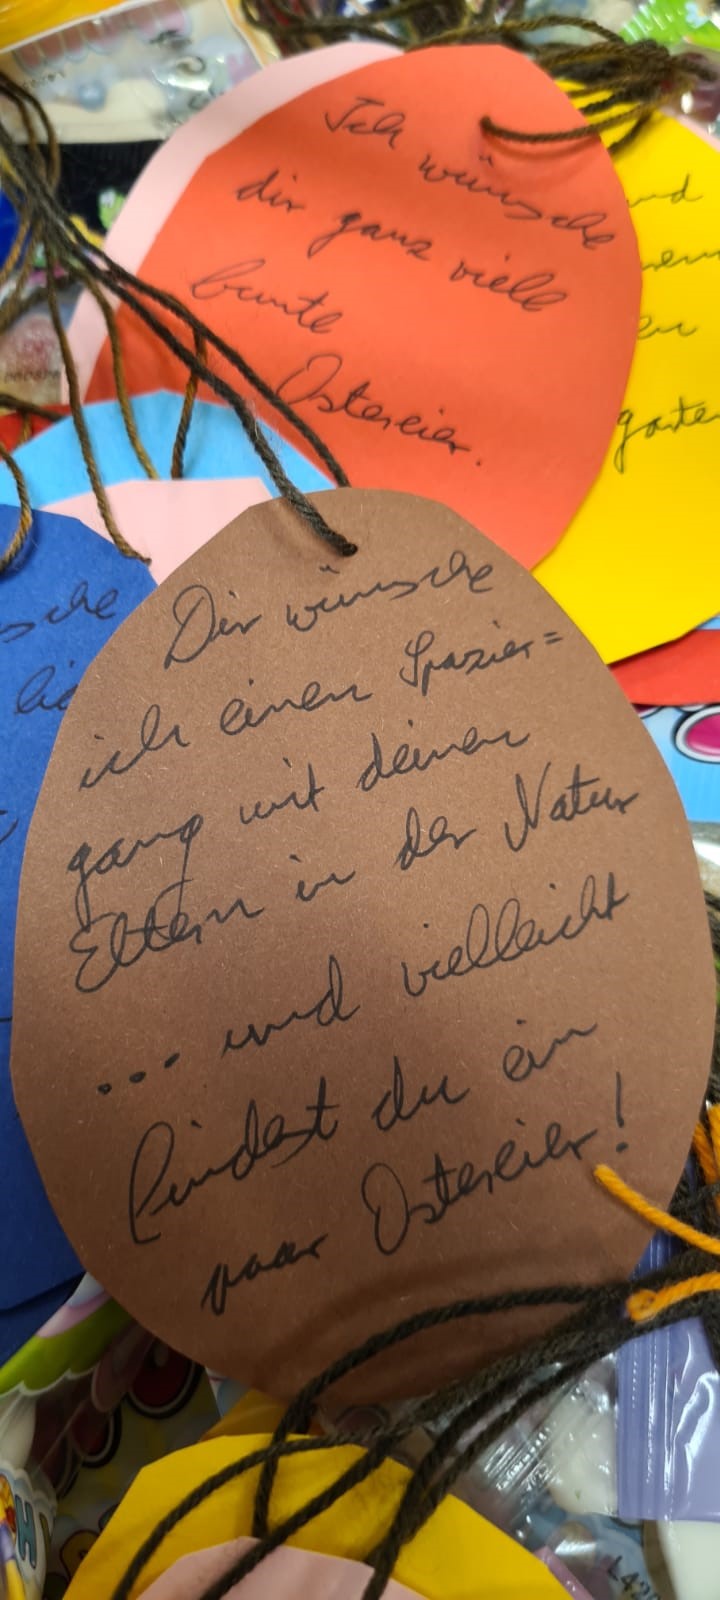 Ich wünsche
dir ganz viele
bunte
Ostereier.
garten
Dir wünsche
ich einen Spazier=
gang mit deinen
Eltern in der Natur
... und vielleicht
findest du ein
paar Ostereier!